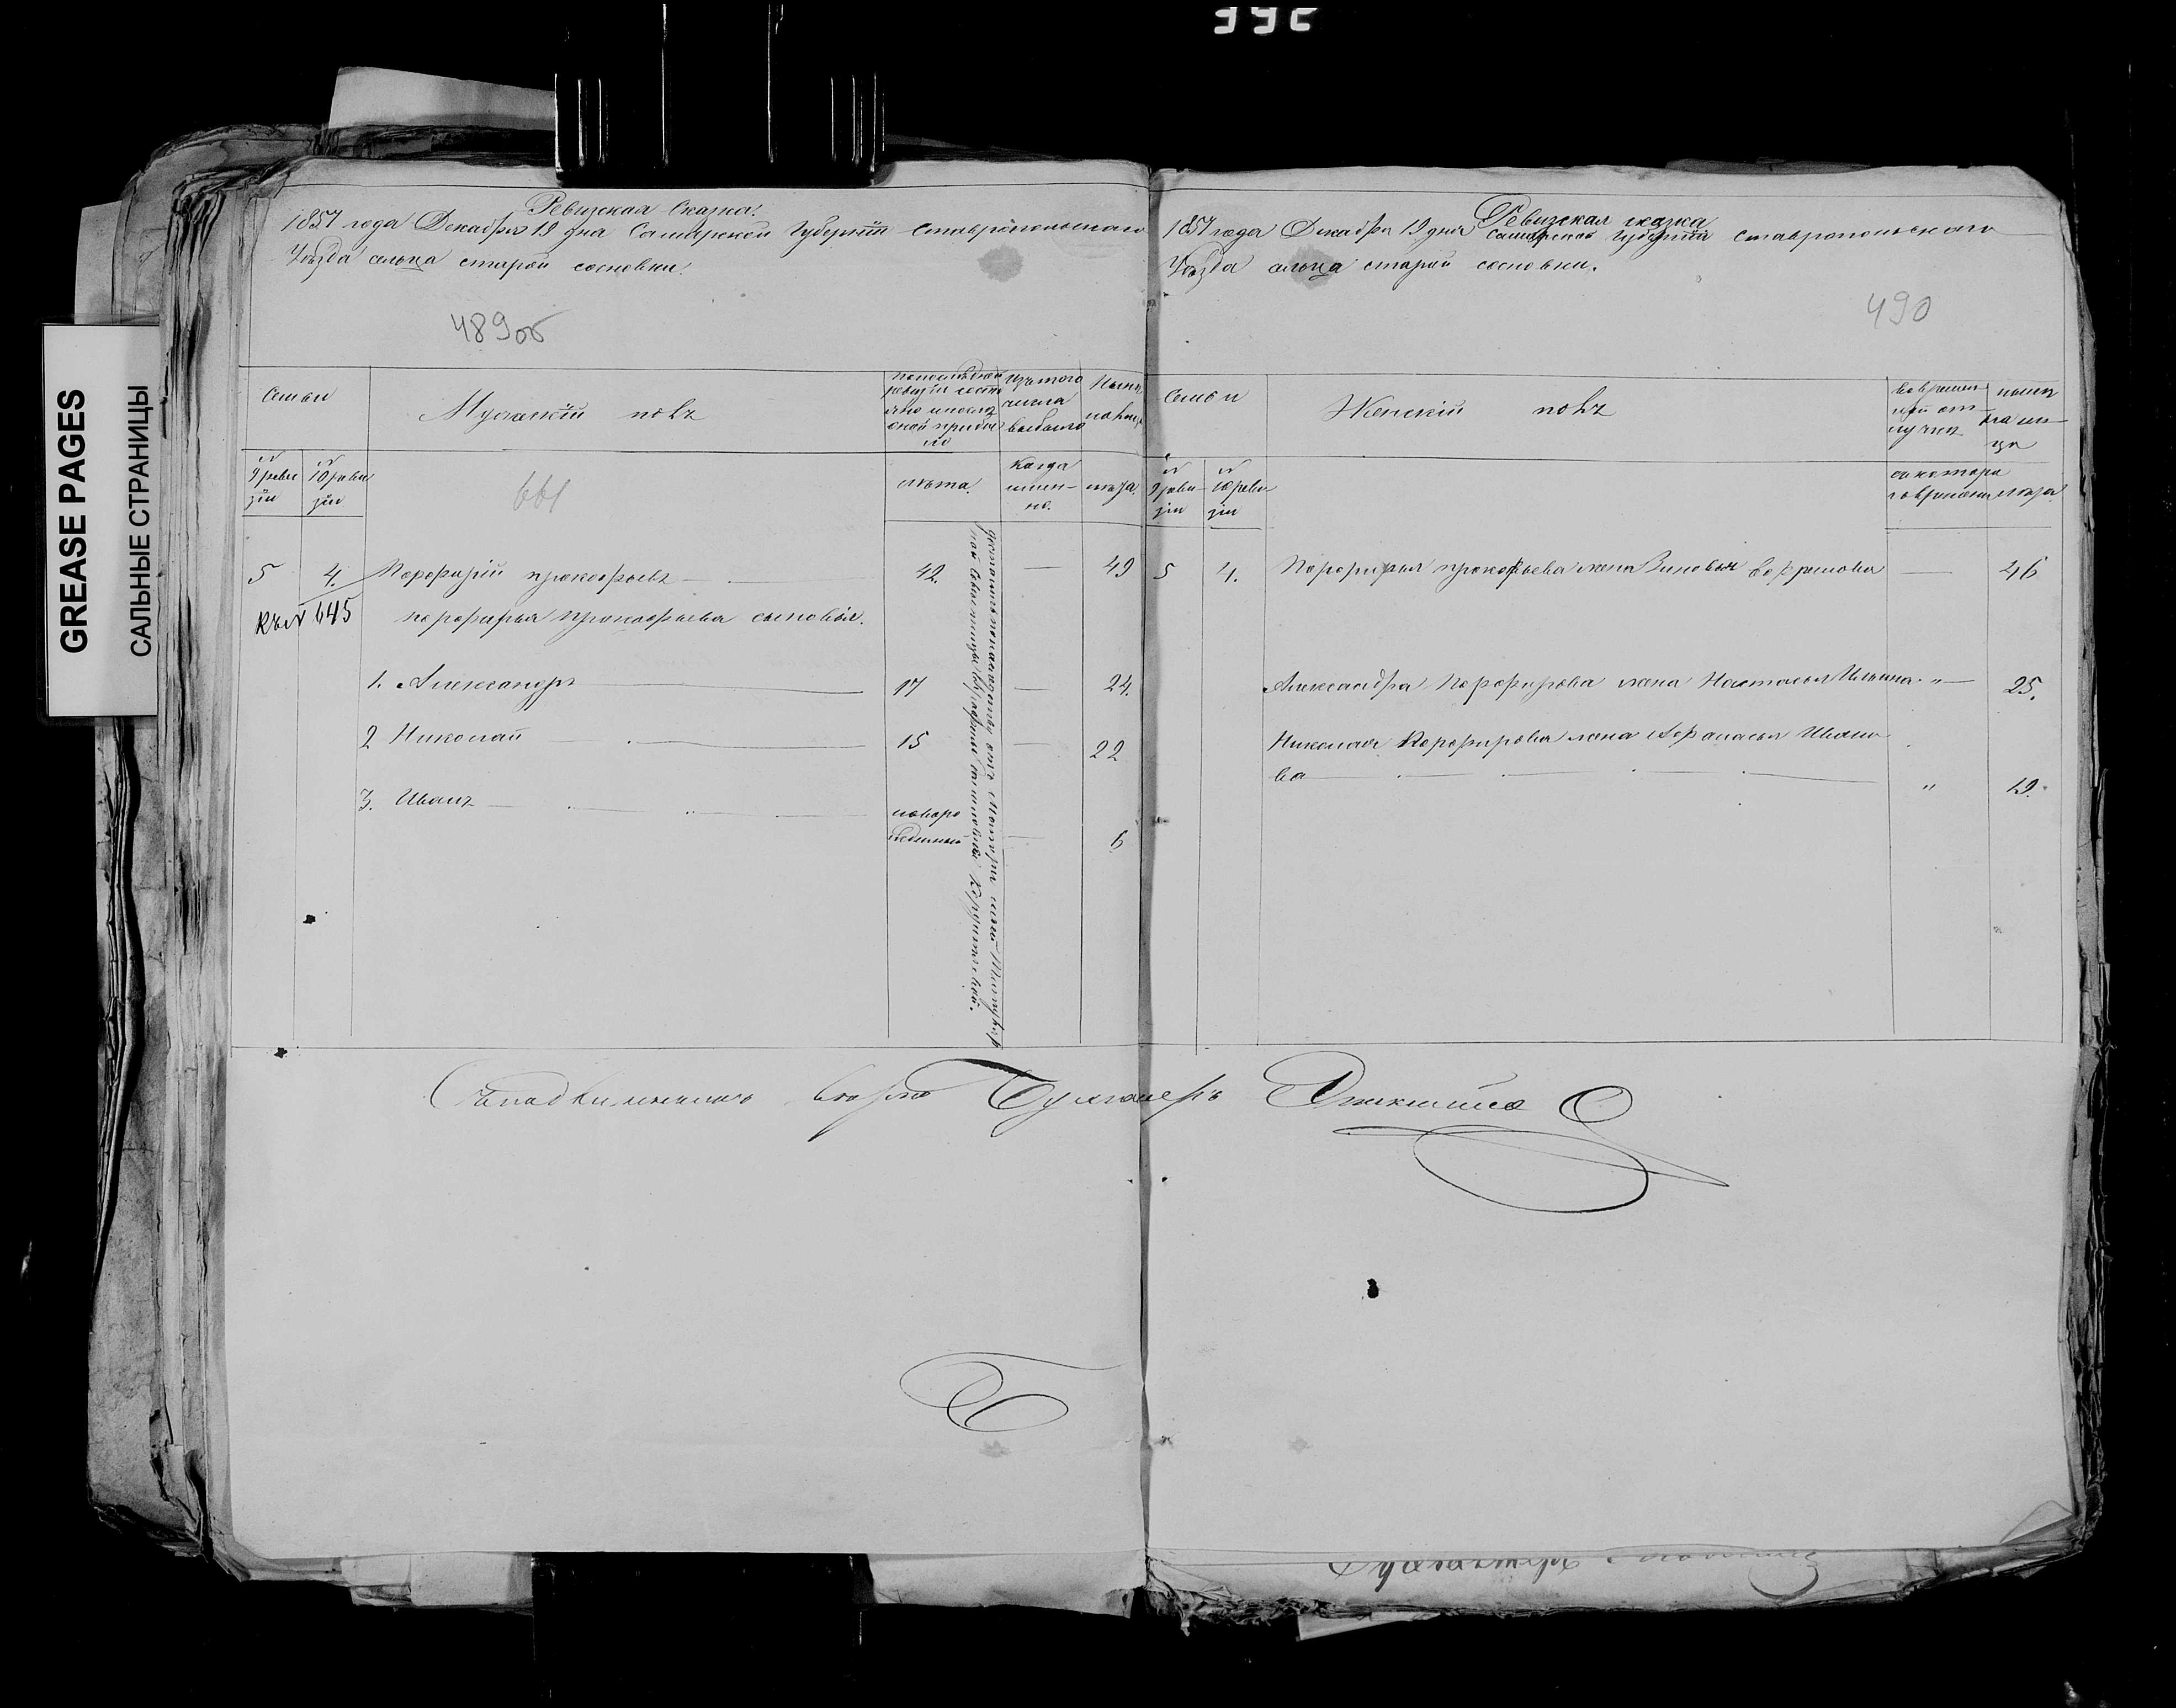 392
GREASE PAGES
САЛЬНЫЕ СТРАНИЦЫ
Ревизская Сказка.
1857 года Декабря 19 дня Самарской Губернiи Ставропольскаго
Уѣзда сельца старой сосновки.
489об
Семьи
Мужескiй полъ
По последней
ревизiи состо
яло и после
оной прибы
ло
Изъ того
числа
выбыло
Ныне
на лицо
№
9 реви
зiи
№
10 реви
зiи
661
лѣта.
Когда
имен-
но.
лѣта.
5 4. Порфирiй прокофьевъ 42. — 49
къ № 645 порфирья Прокофьева сыновья.
1. Александръ 17 — 24.
2 Николай 15 — 22
3. Иванъ
новоро
жденный — 6
Ревизская сказка
1857 года Декабря 19 дня Самарской Губернiи Ставропольскаго
Уѣзда сельца старой сосновки.
490
Семьи
Женскiй полъ
Во времен
ной от-
лучке
ныне
на ли-
цо
№
9 реви-
зiи
№
10 реви
зiи
съ котора
го времени
лѣта
5 4. Порфирья прокофьева жена Зиновья — 46
Александра Порфирова жена Настасья Ильина " — 25.
Николая Порфирова жена Афанасья Ивано
ва " 19.